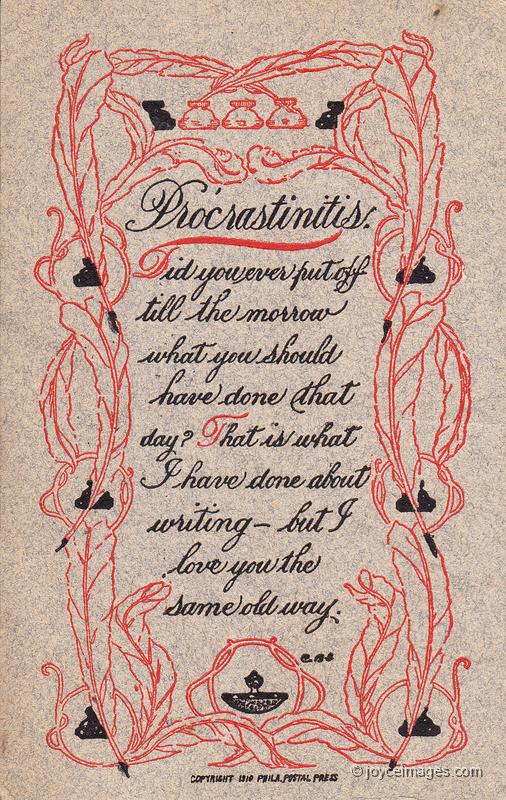 Procrastinitis.
Did you ever put off
till the morrow
what you should
have done that
day? That is what
I have done about
writing – but I
love you the
same old way.
COPYRIGHT 1910 PHILA. POSTAL PRESS
© joyceimages.com